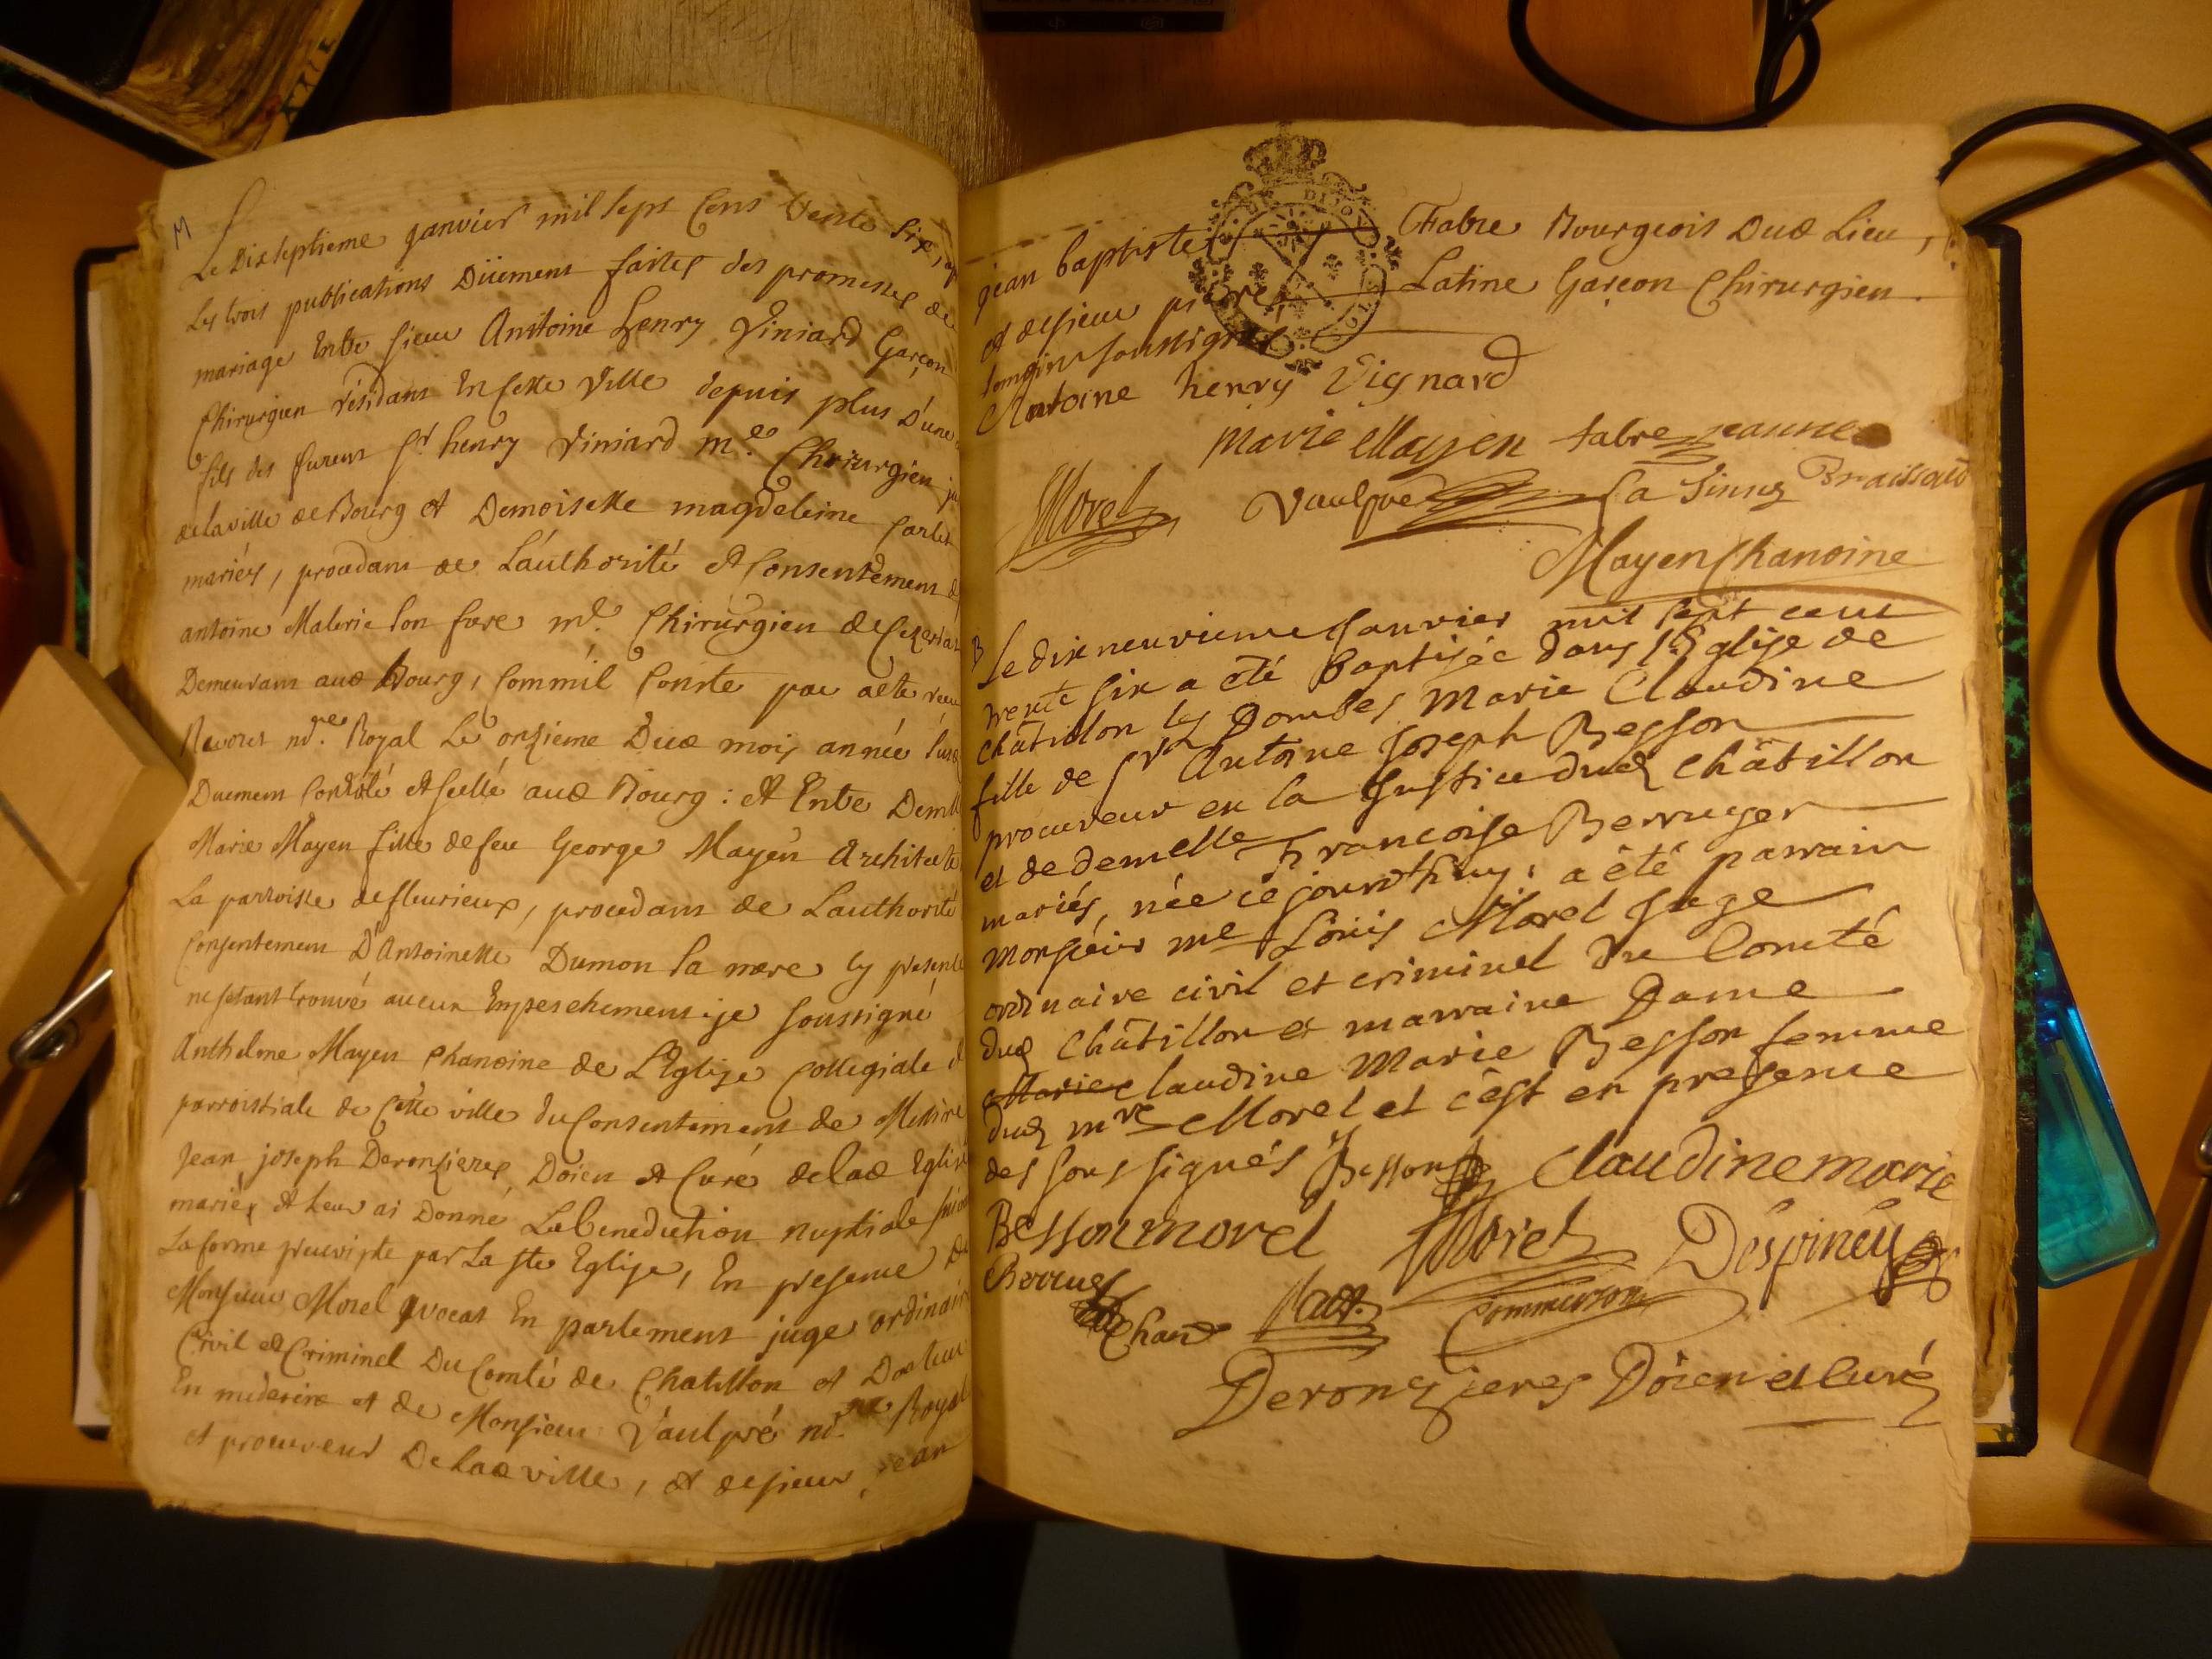 M
Le Dixseptieme janvier mil sept Cens trente six,
Les trois publications Düement faites des promesses de
mariage Entre sieur Anthoine henry Viniard Garçon
Chirurgien résidans En cette Ville depuis plus D'une
fils des furent Sr henry Viniard me. Chirurgien
de la ville de Bourg et Demoiselle magdeleine
mariés, procedans de L'authorité et Consentemens
antoine Malerie son frere me. Chirurgien de
Demeurans aud Bourg, Comm'il Conste par acte receu
nore. Royal Le onzieme Dud mois année
Duemens et scellé aud Bourg : et Entre Demlle
Marie Mayen fille de feu George Mayen Architecte
La parroisse de fleurieux, procedans de Lauthorité
Consentemens D'Antoinette Dumon sa mere Cy presente
ne s'etant trouvé aucun Empeschemens je soussigné
Anthelme Mayen Chanoine de L'Eglise Collegiale
parroissiale de Cette ville du Consentemens de Messire
Jean joseph Deronzieres Doien et Curé de lad Eglise
mariés et Leur ai Donné La benediction nuptiale
La forme prescripte par La Ste Eglise, En presence De
Monsieur Morel Avocat En parlement juge ordinaire
Civil et Criminel Du Comté de Chatillon et Docteur
En medecine et de Monsieur Vaulpré nore Royal
et procureur De lad ville, et de sieur jean
jean baptiste Fabre Bourgeois Dud Lieu,
et de sieur pierre Latine Garçon Chirurgien.
temoins soussignés.
Antoine henry Vignard
Marie Mayen fabre jeanne
Morel Vaulpré
Mayen Chanoine
B
Le dix neuvieme Janvier mil sept cent
trente six a eté Baptisée dans l'Eglise de
Châtillon les Dombes Marie Claudine
fille de Sr Antoine Joseph Besson
procureur en la Justice dud Châtillon
et de demelle Francoise Berruyer
mariés, née ce jourd'huy; a été parrain
Monsieur me Louis Morel Juge
ordinaire civil et criminel du Comté
dud Châtillon et marraine Dame
Marie Claudine Marie Besson femme
dud mre Morel et c'est en presence
des soussignés Besson Claudine marie
Besson morel Morel Despiney
Commerson
Deronzieres Doien et Curé